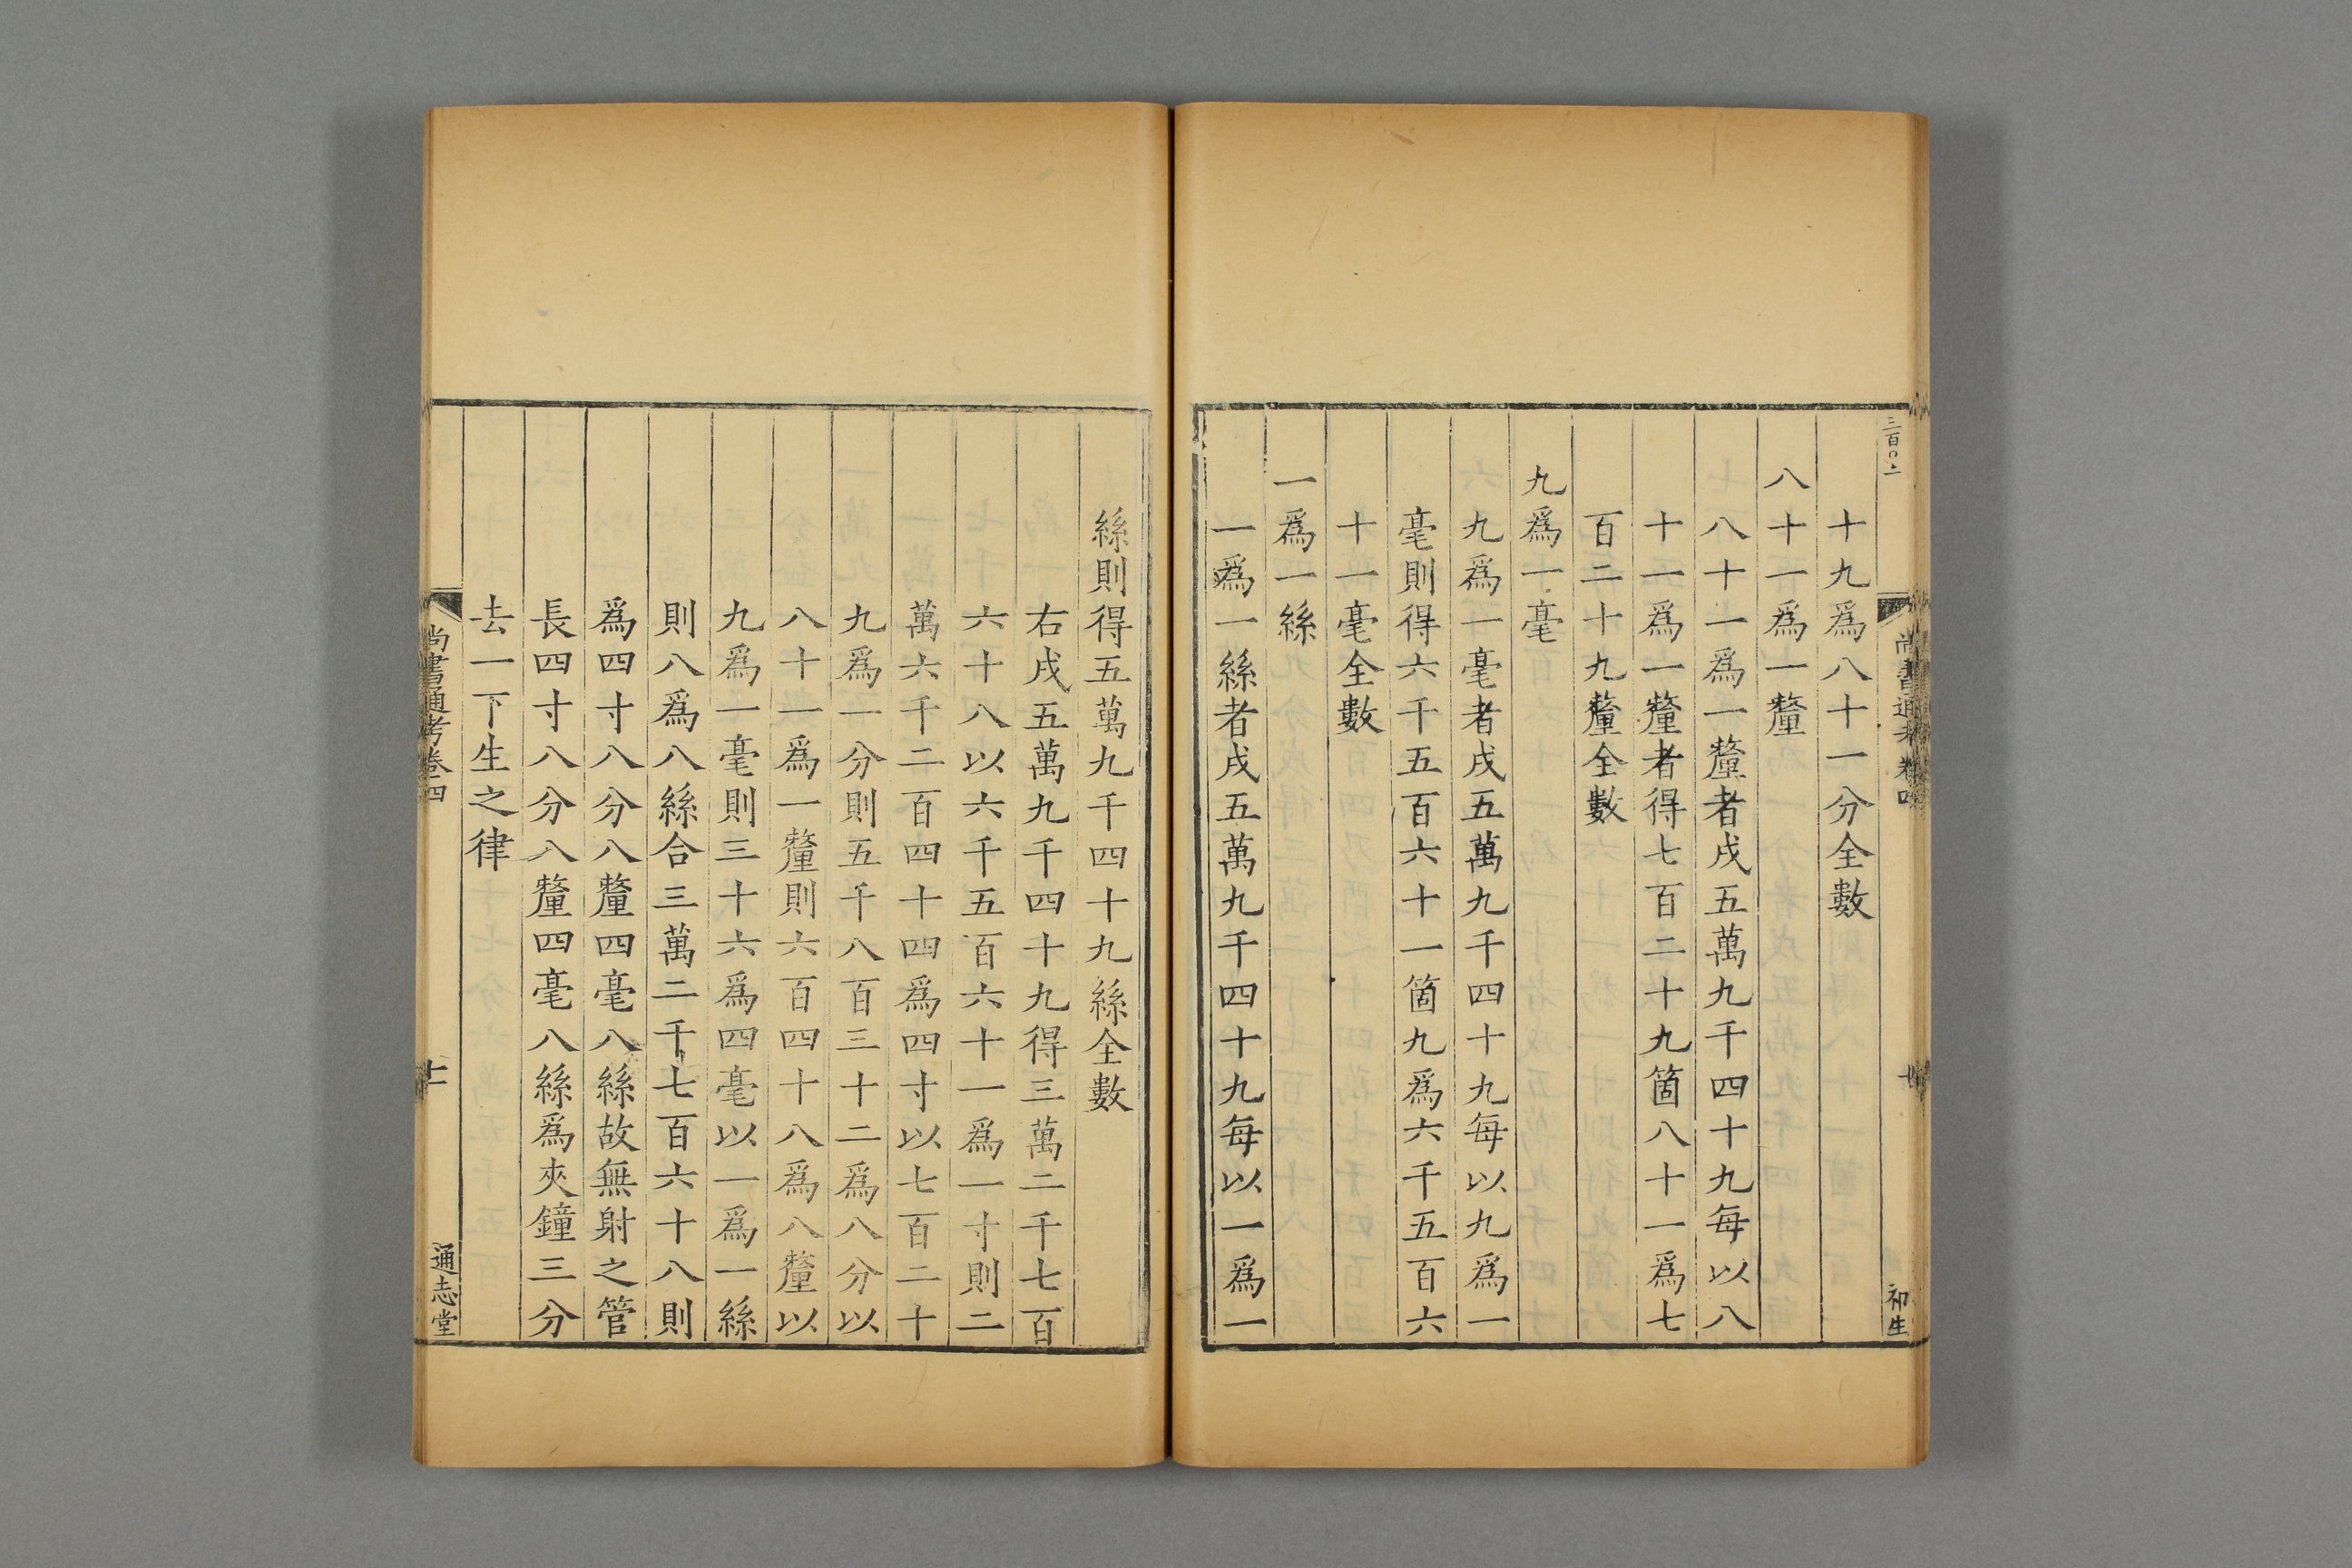 三百〇二
尚書通考卷四
初生
十九爲八十一分全數
八十一爲一釐
八十一爲一釐者戌五萬九千四十九每以八
十一爲一釐者得七百二十九箇八十一爲七
百二十九釐全數
九爲一毫
九爲一毫者戌五萬九千四十九每以九爲一
毫則得六千五百六十一箇九爲六千五百六
十一毫全數
一爲一絲
一爲一絲者戌五萬九千四十九每以一爲一
絲則得五萬九千四十九絲全數
右戌五萬九千四十九得三萬二千七百
六十八以六千五百六十一爲一寸則二
萬六千二百四十四爲四寸以七百二十
九爲一分則五千八百三十二爲八分以
八十一爲一釐則六百四十八爲八釐以
九爲一毫則三十六爲四毫以一爲一絲
則八爲八絲合三萬二千七百六十八則
爲四寸八分八釐四毫八絲故無射之管
長四寸八分八釐四毫八絲爲夾鐘三分
去一下生之律
尚書通考卷四
通志堂